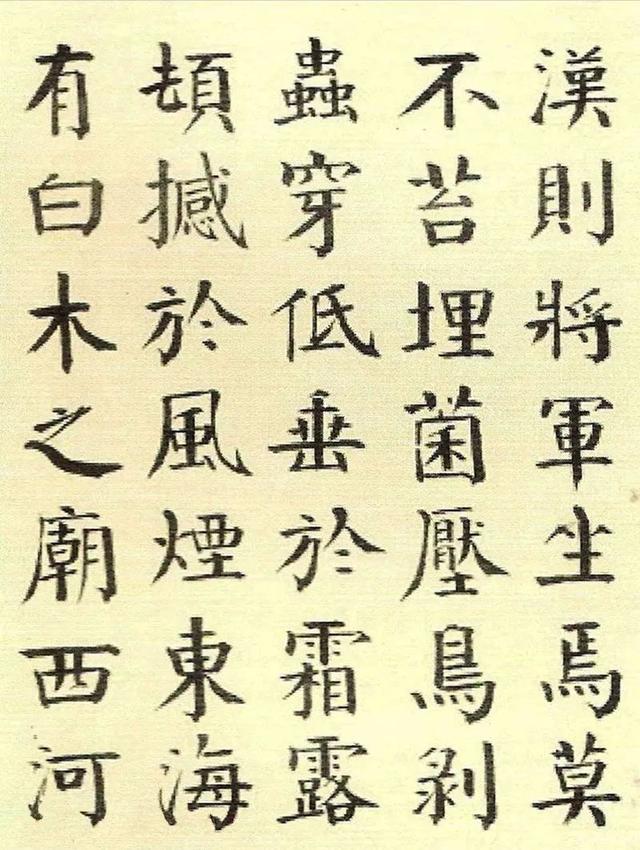 漢則將軍坐焉莫
不苔埋菌壓鳥剝
蟲穿低垂於霜露
頓撼於風煙東海
有白木之廟西河